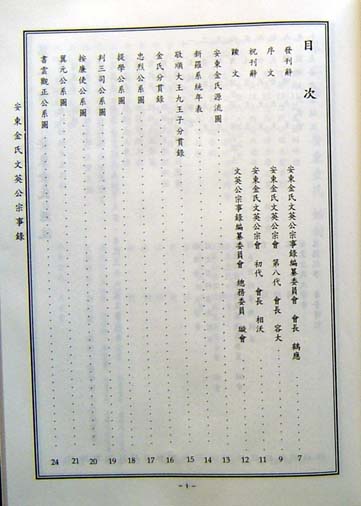 目 次
發刊辭 安東金氏文英公宗事錄編纂委員會 會長 鶴應 7
序文 安東金氏文英公宗會 第八代 會長 容大 9
祝刊辭 安東金氏文英公宗會 初代 會長 相沃 11
文 文英公宗事錄編纂委員會 總務委員 會 12
安東金氏源流圖 13
新羅系統年表 14
敬順大王九王子分貫錄 15
金氏分貫錄 16
忠烈公系圖 17
提學公系圖 18
判三司公系圖 19
按廉使公系圖 20
翼元公系圖 21
書雲觀正公系圖 24
安東金氏文英公宗事錄